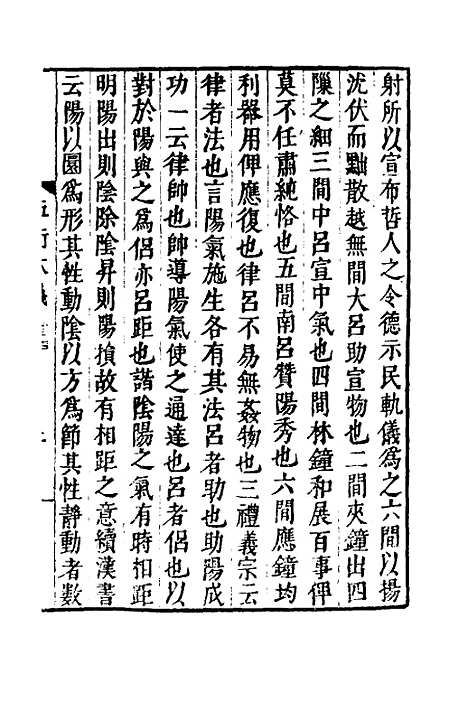 射所以宣布哲人之令德示民軌儀爲之六間以揚
沈伏而黜散越無間大呂助宣物也二間夾鐘出四
隟之細三間中呂宣中氣也四間林鐘和展百事俾
莫不任肅純恪也五間南呂贊陽秀也六間應鐘均
利器用俾應復也律呂不易無姦物也三禮義宗云
律者法也言陽氣施生各有其法呂者助也助陽成
功一云律帥也帥導陽氣使之通達也呂者侶也以
對於陽與之爲侶亦呂距也諧陰陽之氣有時相距
明陽出則陰除陰昇則陽損故有相距之意續漢書
云陽以圓爲形其性動陰以方爲節其性靜動者數
五行大義